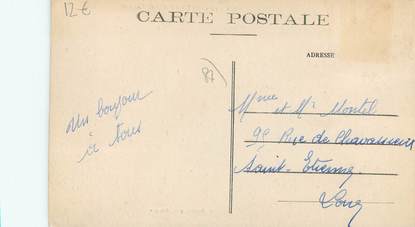 12€
CARTE POSTALE
ADRESSE
87
Un bonjour
à tous
Mme et Mr Montel
98 Rue de
Saint-Etienne
Loire